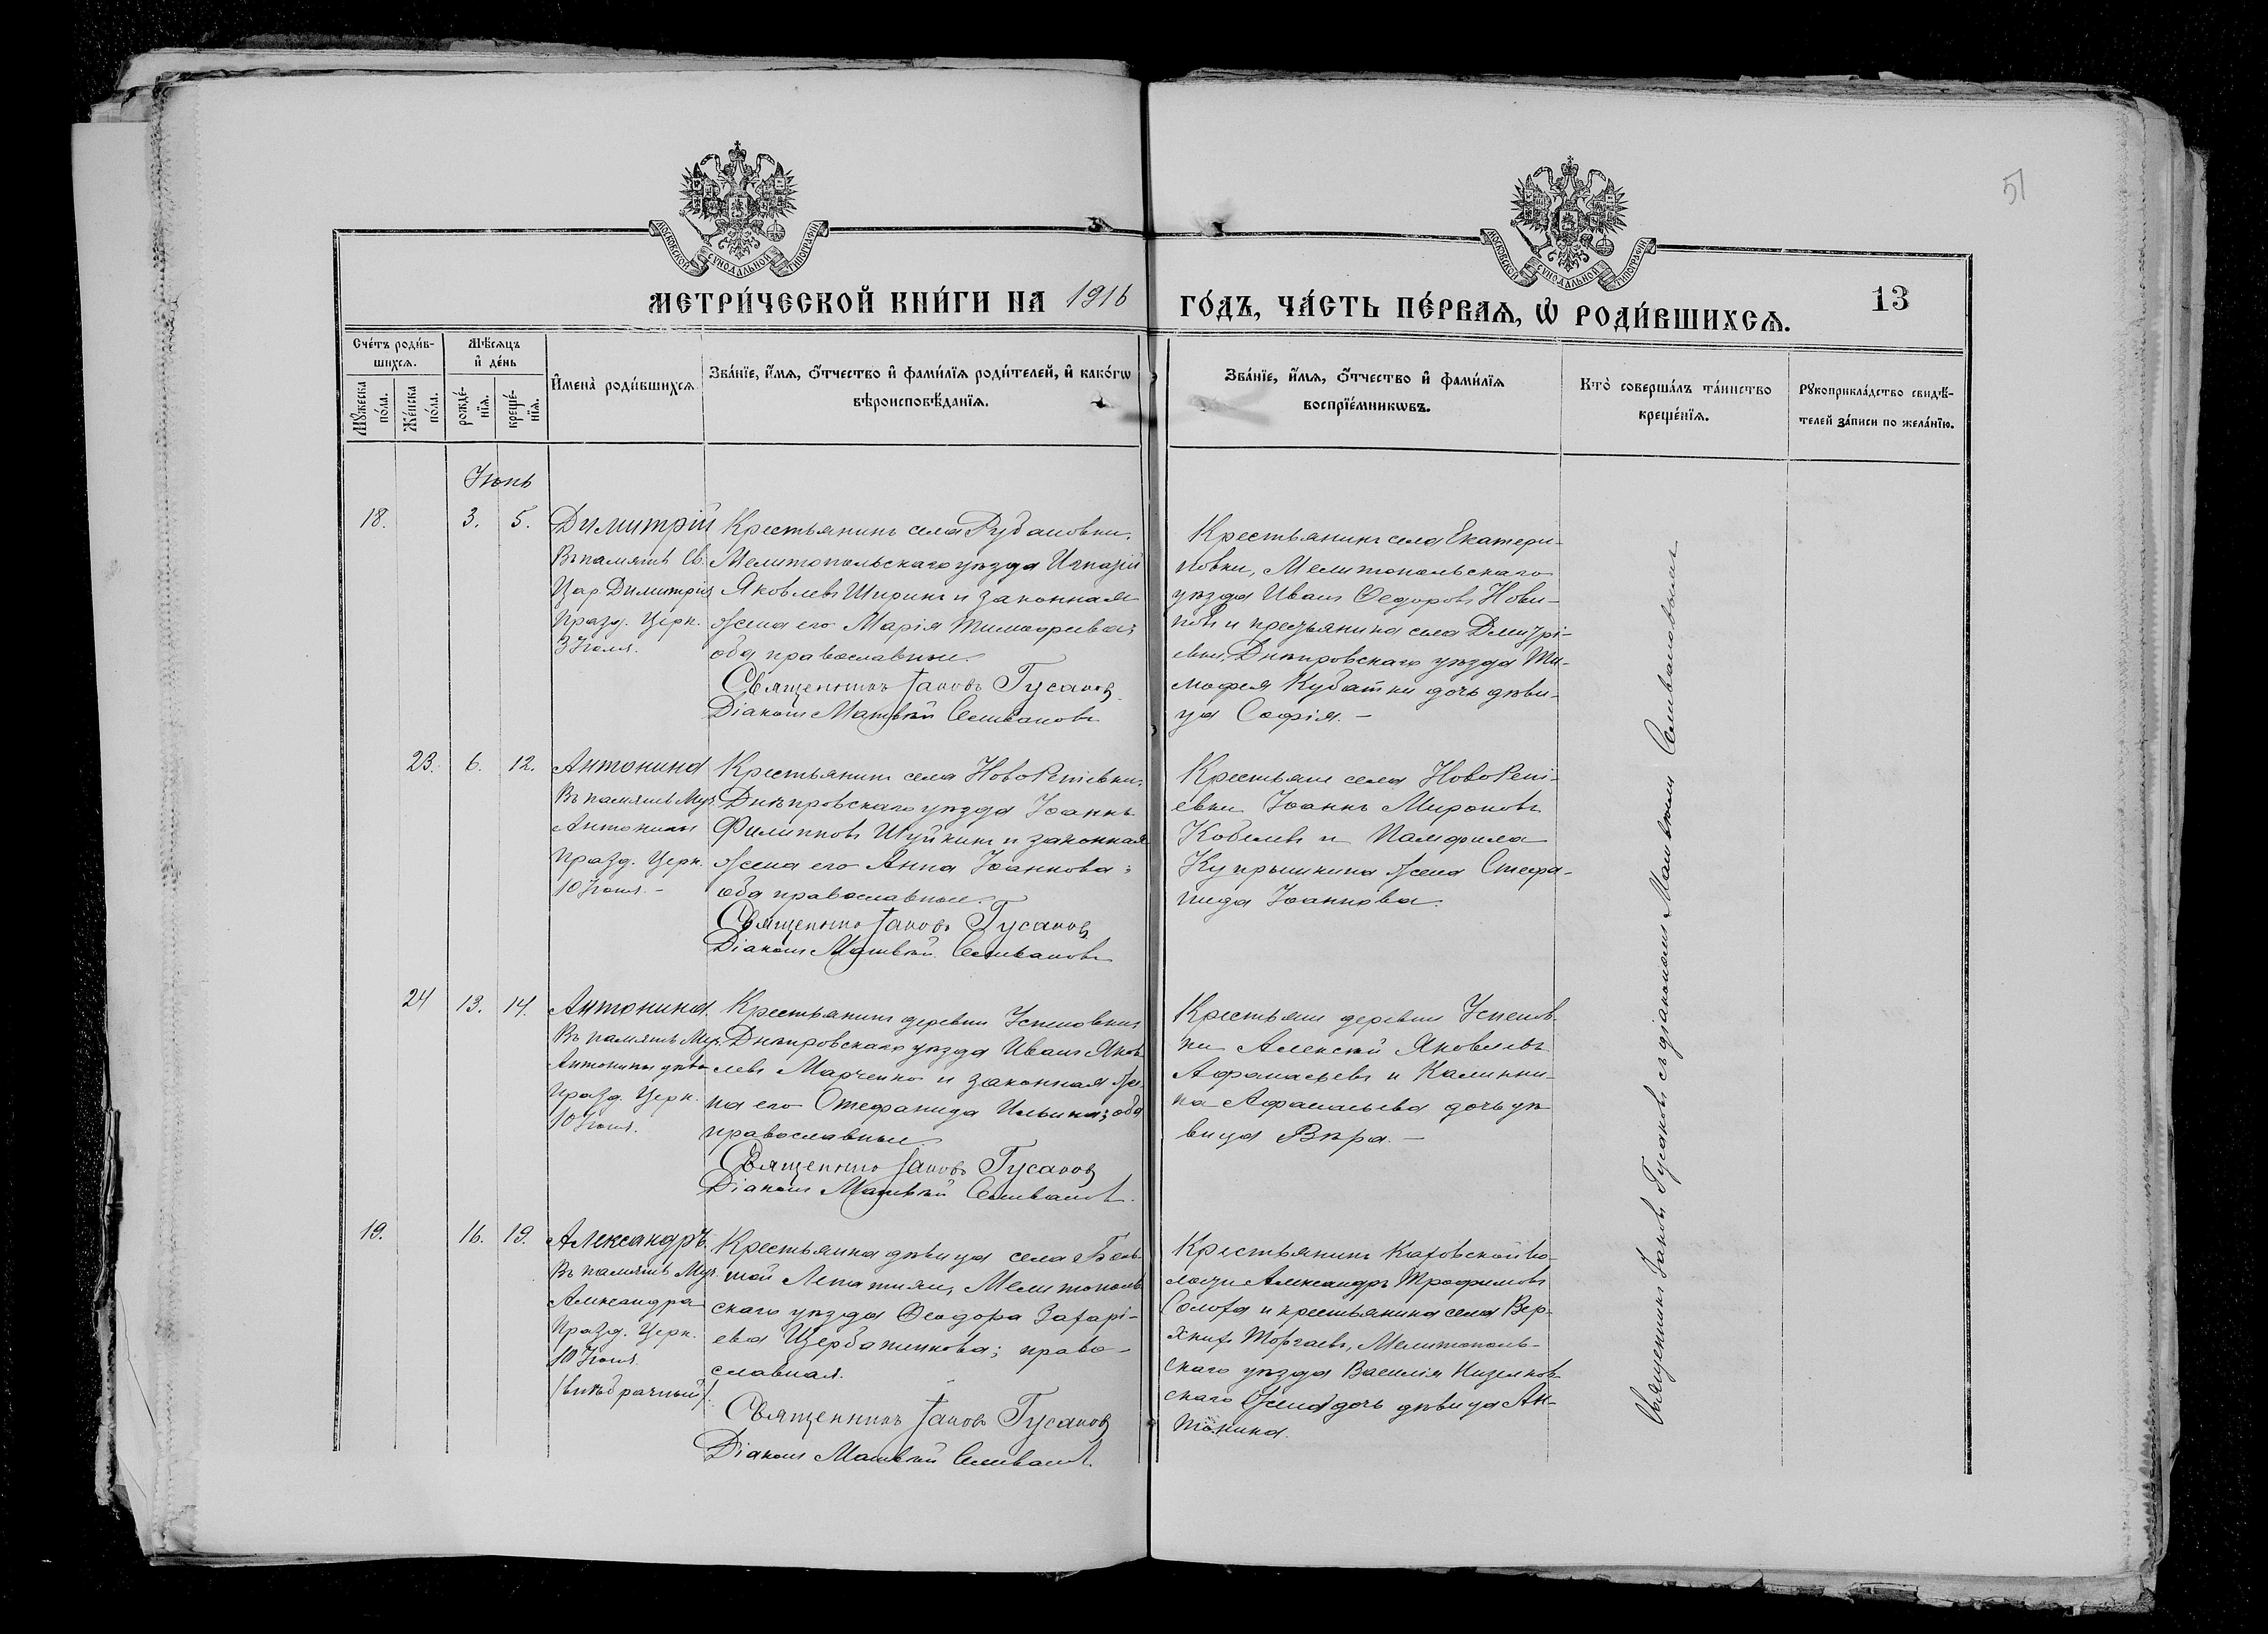 51
МОСКОВСКОЙ СѴНОДАЛЬНОЙ ТИПОГРАФІИ
МОСКОВСКОЙ СѴНОДАЛЬНОЙ ТИПОГРАФІИ
МЕТРИ́ЧЕСКОЙ КНИ́ГИ НА 1916 ГО́ДЪ, ЧА́СТЬ ПЕ́РВАѦ, Ѡ҆ РОДИ́ВШИХСѦ. 13
Сче́тъ роди́в-
шихсѧ.
Мꙋ́жеска
по́ла.
Же́нска
по́ла.
Мѣ́сѧцъ
и҆ де́нь
рожде́-
нїѧ.
креще́-
нїѧ.
И҆мена̀ роди́вшихсѧ
Зва́нїе, и҆́мѧ, ѻ҆́тчество и҆ фами́лїѧ роди́телей, и҆ како́гѡ
вѣроисповѣ́данїѧ.
Зва́нїе, и҆́мѧ, ѻ҆́тчество и҆ фами́лїѧ
воспрїе́мникѡвъ.
Кто̀ соверша́лъ та́инство
креще́нїѧ.
Рꙋкоприкла́дство свидѣ́-
телей за́писи по жела́нїю.
Іюнь
18. 3. 5.
Димитрій
Въ память Св.
Цар. Димитрія
Празд. Церк.
3 Іюня.
Крестьянинъ села Рубановки,
Мелитопольскаго уѣзда Игнатій
Яковлевъ Ширинъ и законная
жена его Марія Тимоѳеева;
оба православные.
Священникъ Іаковъ Гусаковъ
Діаконъ Матвѣй Селивановъ
Крестьянинъ села Екатери-
новки, Мелитопольскаго
уѣзда Иванъ Ѳедоровъ Нови-
ковъ и крестьянина села Дмитрі-
евки, Днѣпровскаго уѣзда Ти-
моѳея Кубатки дочь дѣви-
ца Софія. -
23. 6. 12.
Антонина
Въ память Муч.
Антонины
Празд. Церк.
10 Іюня. -
Крестьянинъ села НовоРепіевки,
Днѣпровскаго уѣзда Іоаннъ
Филипповъ Шуйкинъ и законная
жена его Анна Іоаннова;
оба православные.
Священникъ Іаковъ Гусаковъ
Діаконъ Матвѣй Селивановъ
Крестьяне села НовоРепі-
евки Іоаннъ Мироновъ
Кобелевъ и Памфила
Купрышкина жена Стефа-
нида Іоаннова.
24 13. 14.
Антонина.
Въ память Муч.
Антонины дѣвы
Празд. Церк.
10 Іюня.
Крестьянинъ деревни Успеновки
Днѣпровскаго уѣзда Иванъ Яков-
левъ Марченко и законная же-
на его Стефанида Ильина; оба
православные.
Священникъ Іаковъ Гусаковъ
Діаконъ Матвѣй Селивановъ.
Крестьяне деревни Успенов-
ки Алексѣй Яковлевъ
Афанасьевъ и Калинни-
ка Афанасьева дочь дѣ-
вица Вѣра. -
19. 16. 19.
Александръ.
Въ память Муч.
Александра
Празд. Церк.
10 Іюня.
/внѣбрачный/.
Крестьянка дѣвица села Боль-
шой Лепатихи, Мелитополь-
скаго уѣзда Ѳеодора Захарі-
ева Щербатенкова; право-
славная.
Священникъ Іаковъ Гусаковъ
Діаконъ Матвѣй Селивановъ.
Крестьянинъ Каховской во-
лости Александръ Трофимовъ
Солоха и крестьянина села Вер-
хнихъ Торгаевъ, Мелитополь-
скаго уѣзда Василія Низелков-
скаго дочь дѣвица Ан-
тонина.
Священникъ Іаковъ Гусаковъ съ діакономъ Матвѣемъ Селивановымъ